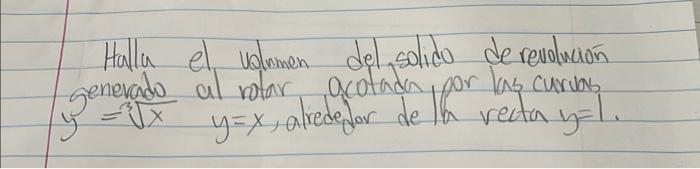 Halla el volumen del solido de revolución
generado al rotar acotada por las curvas
y = ∛x y=x, alrededor de la recta y=1.